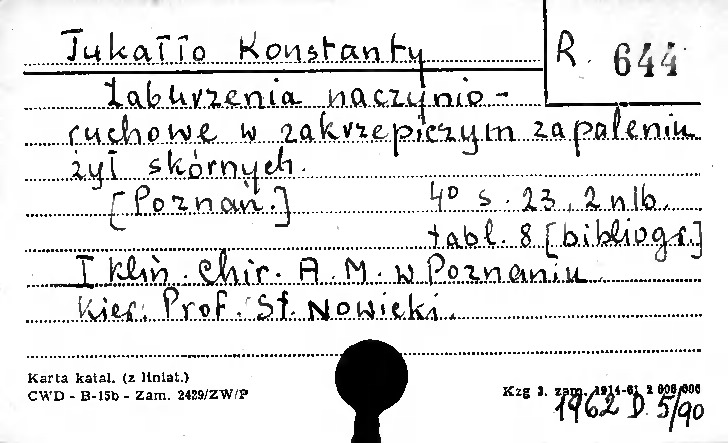 Tukałło Konstanty
R. 644
Zaburzenia naczynio-
ruchowe w zakrzepiczym zapaleniu
żył skórnych.
[Poznań.] 4° s. 23, 2 nlb.
tabl. 8 [bibliogr.]
I klin. Chir. A. M. w Poznaniu
Kier. Prof. St. Nowicki.
Karta katal. (z liniat.)
CWD - B-15b - Zam. 2429/ZW/P
Kzg 3. zam. 1914-61 2 000 000
1962 D. 5/90